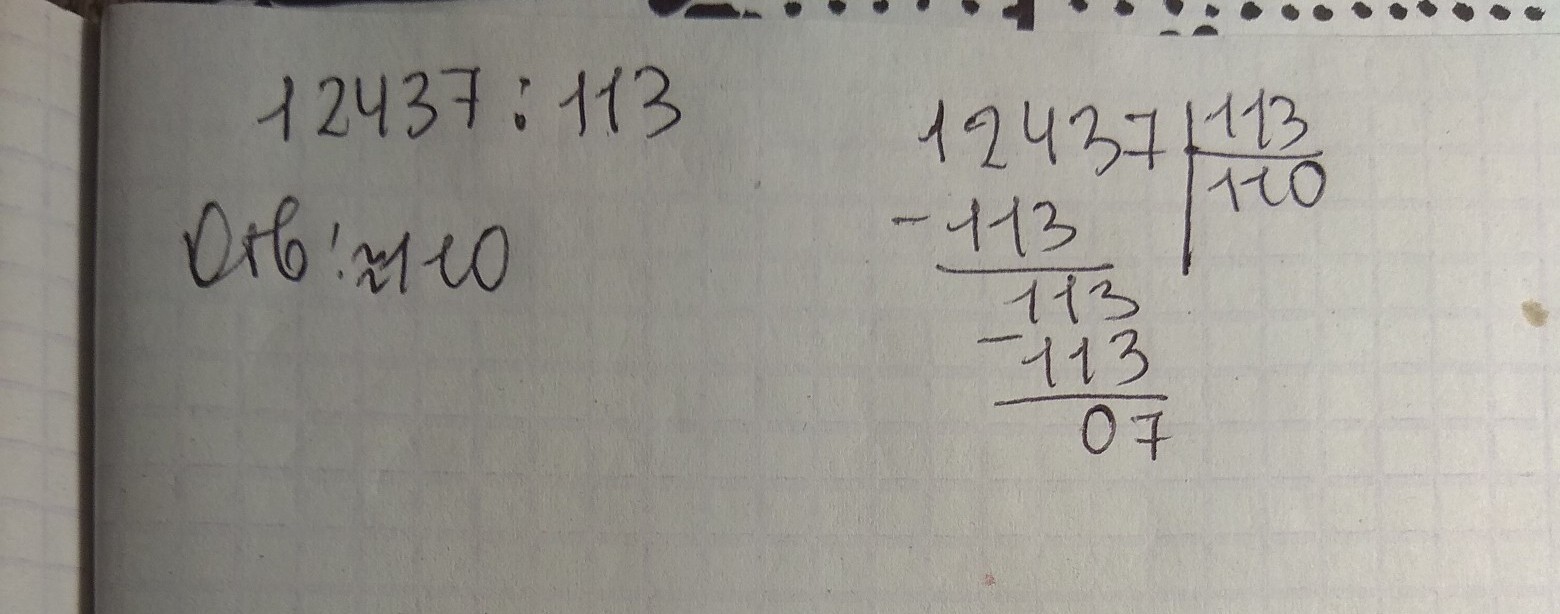 12437 : 113
Отв: ≈110
12437 | 113
110
- 113
113
- 113
07